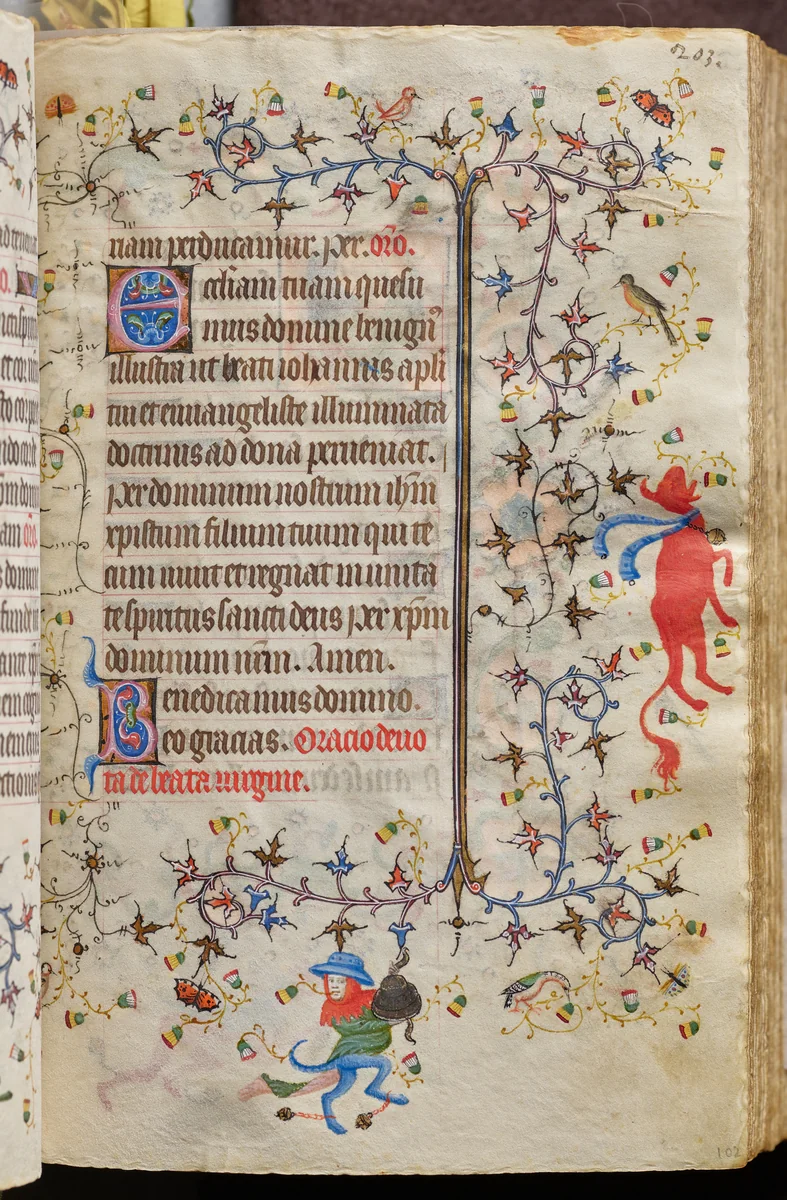 5203.
riam perducamur. per. or̄o.
Ecclīam tuam quesu
mus domine benign9
illustra ut beati iohannis apl̄i
tui et euuangeliste illuminata
doctrinis ad dona perueniat.
per dominum nostrum ih̄m
xpistum filium tuum qui te
cum uiuit et regnat in unita
te spiritus sancti deus per xp̄m
dominum nr̄m. Amen.
Benedicamus domino.
Deo gracias. Oracio deuo
ta de beata uirgine.
102